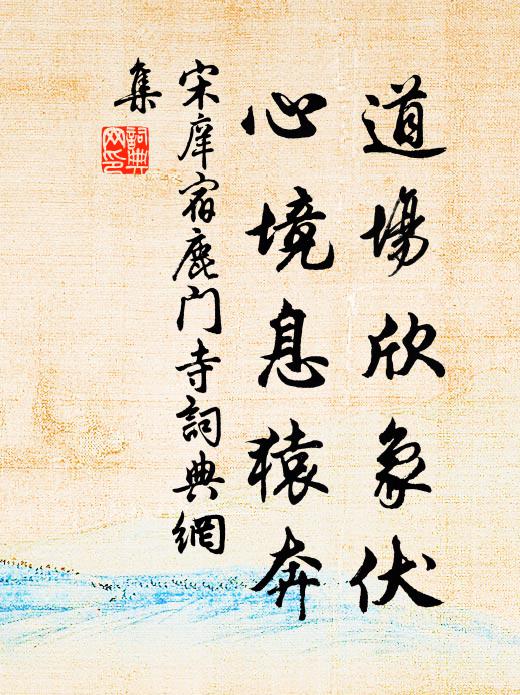 道場欣象伏
心境息猿奔
宋庠宿鹿門寺詞典網
集
詞典網印